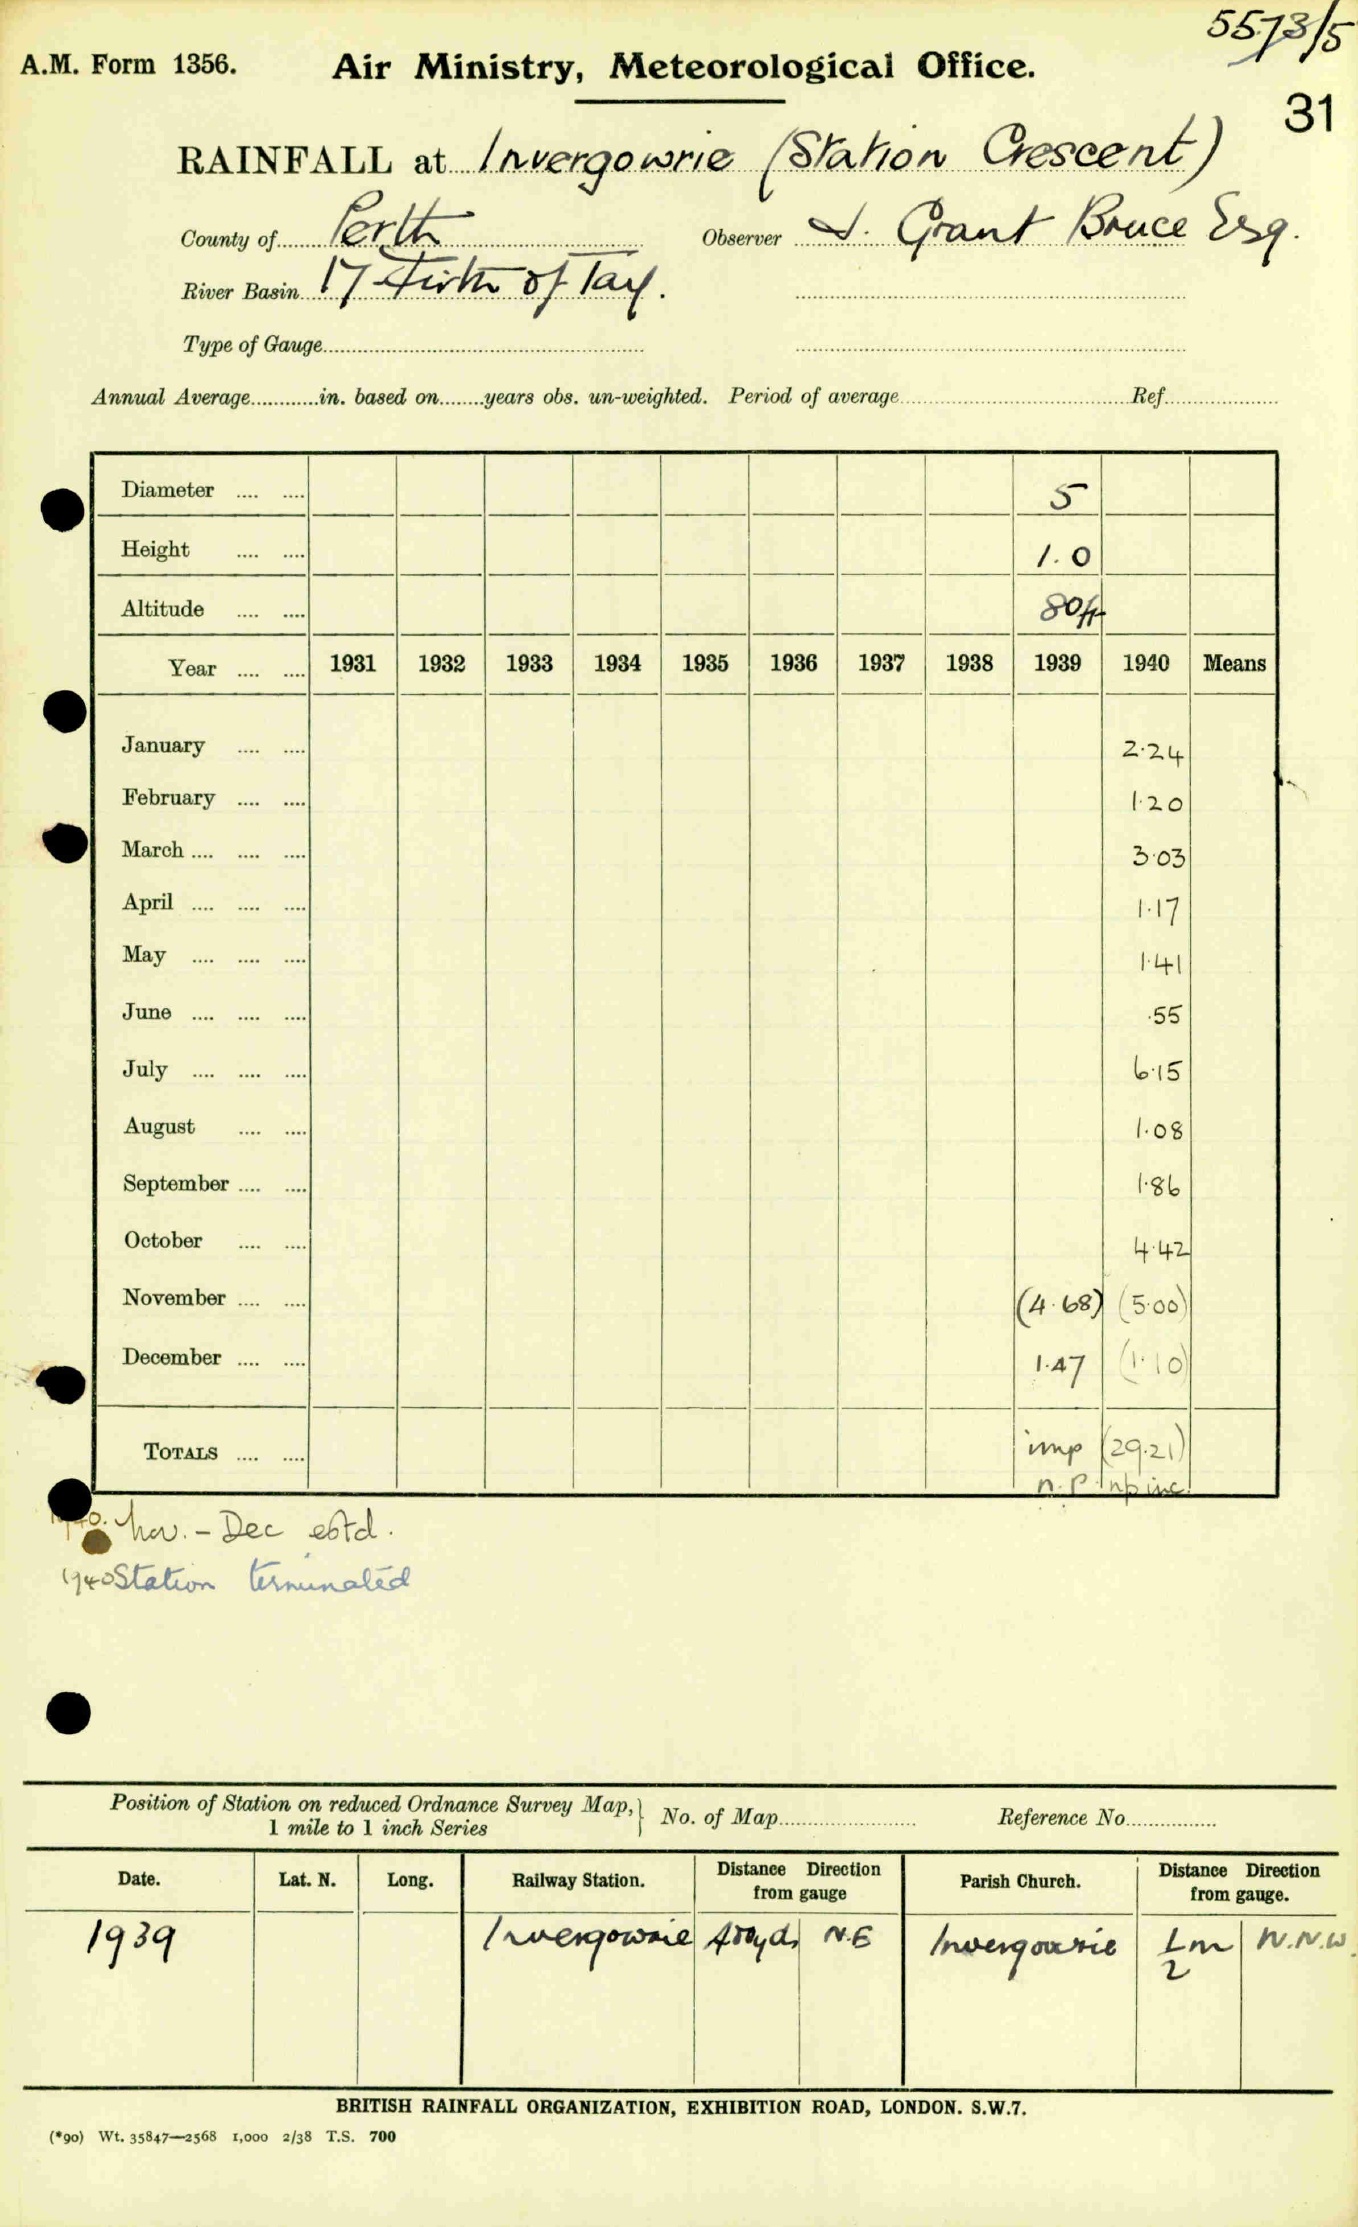 5573/5
A.M. Form 1356. Air Ministry, Meteorological Office.
31
RAINFALL at Invergowrie (Station Crescent)
County of Perth Observer J. Grant Bruce Esq.
River Basin 17 Firth of Tay.
Type of Gauge
Annual Average in. based on years obs. un-weighted. Period of average Ref
Diameter 5
Height 1.0
Altitude 80ft
Year 1931 1932 1933 1934 1935 1936 1937 1938 1939 1940 Means
January 2.24
February 1.20
March 3.03
April 1.17
May 1.41
June .55
July 6.15
August 1.08
September 1.86
October 4.42
November (4.68) (5.00)
December 1.47 (1.10)
TOTALS imp (29.21)
n.p np inc.
1940. Nov. - Dec estd.
1940 Station terminated
Position of Station on reduced Ordnance Survey Map, } No. of Map Reference No
1 mile to 1 inch Series
Date. Lat. N. Long. Railway Station. Distance Direction from gauge Parish Church. Distance Direction from gauge.
1939 Invergowrie yds N.E Invergowrie 1/2 m N.N.W.
BRITISH RAINFALL ORGANIZATION, EXHIBITION ROAD, LONDON. S.W.7.
(*90) Wt. 35847—2568 1,000 2/38 T.S. 700